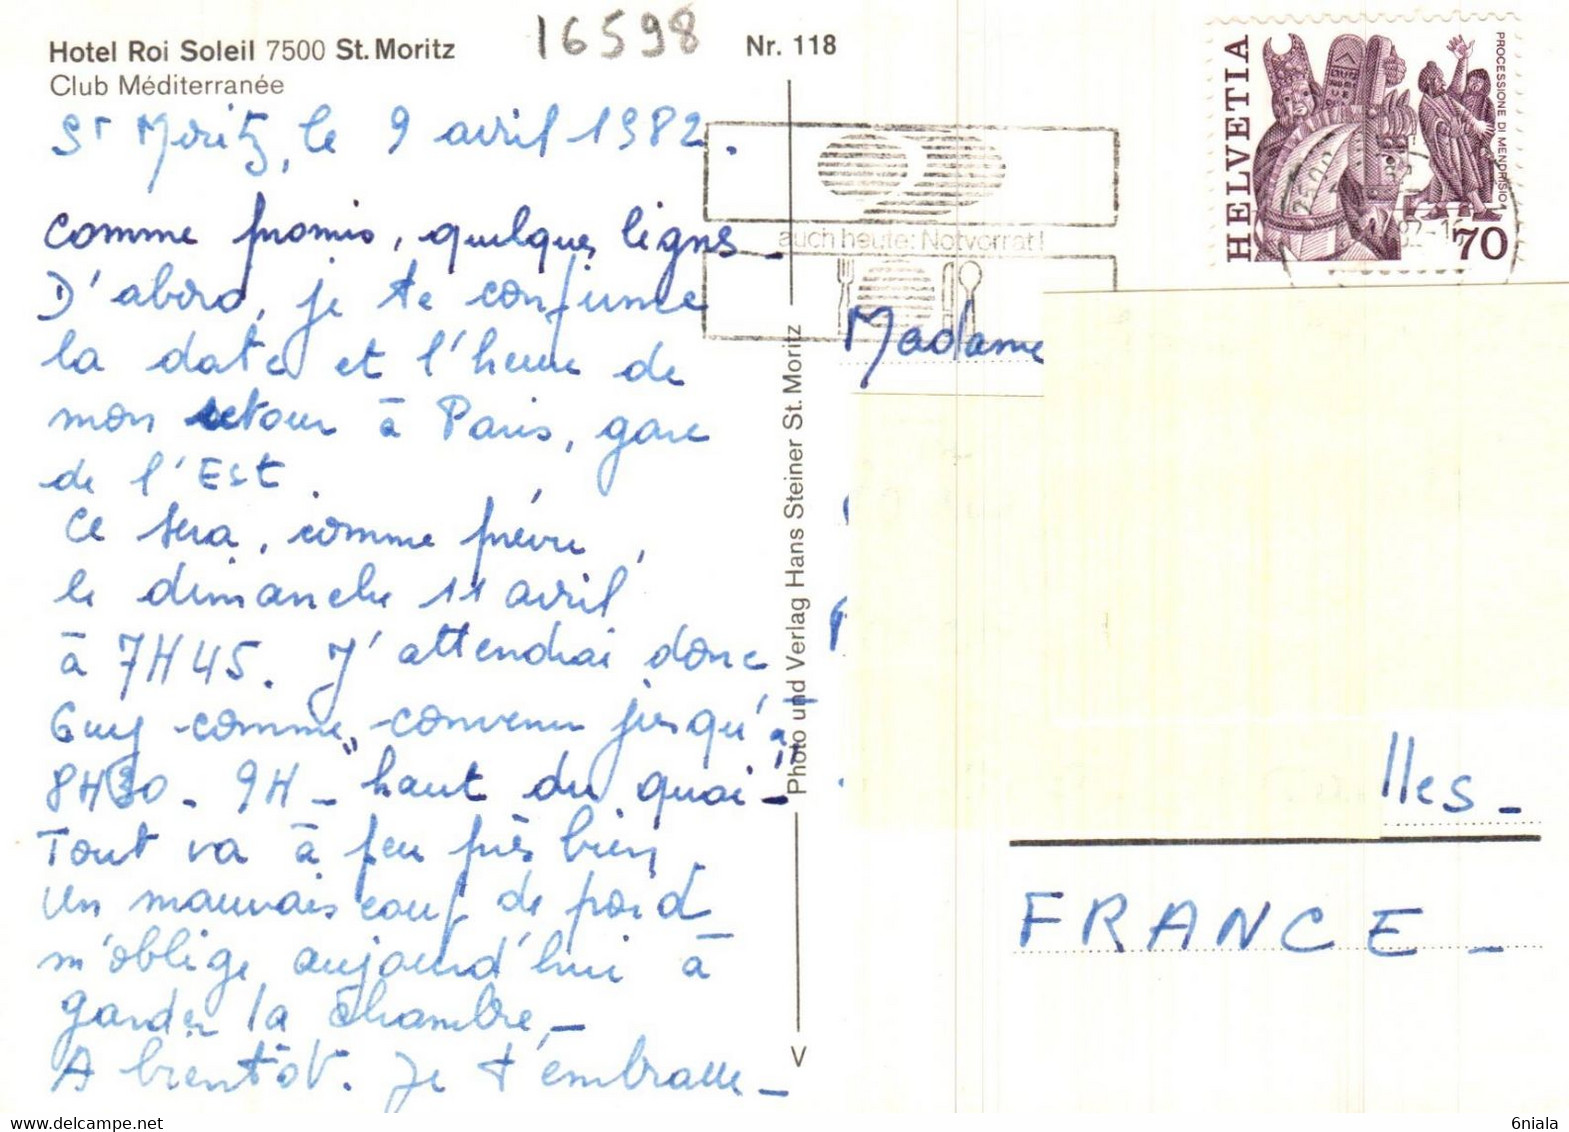 16598
Hotel Roi Soleil 7500 St. Moritz
Nr. 118
Club Méditerranée
St Moritz, le 9 avril 1982.
Comme promis, quelques lignes_
D'abord, je te confirme
la date et l'heure de
mon retour à Paris, gare
de l'Est.
Ce sera, comme prévu,
le dimanche 11 avril
à 7H45. J'attendrai donc
Guy comme convenu jusqu'à
8H30_ 9H_ "haut du quai"_
Tout va à peu près bien.
Un mauvais coup de froid
m'oblige aujourd'hui à
garder la chambre_
A bientôt. Je t'embrasse_
Photo und Verlag Hans Steiner St. Moritz
V
auch heute: Notvorrat!
HELVETIA
PROCESSIONE DI MENDRISIO
70
Madame
lles_
FRANCE_
6niala